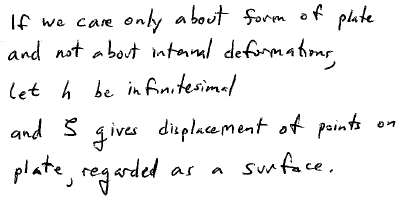 If we care only about form of plate
and not about internal deformations,
let h be infinitesimal
and ζ gives displacement of points on
plate, regarded as a surface.